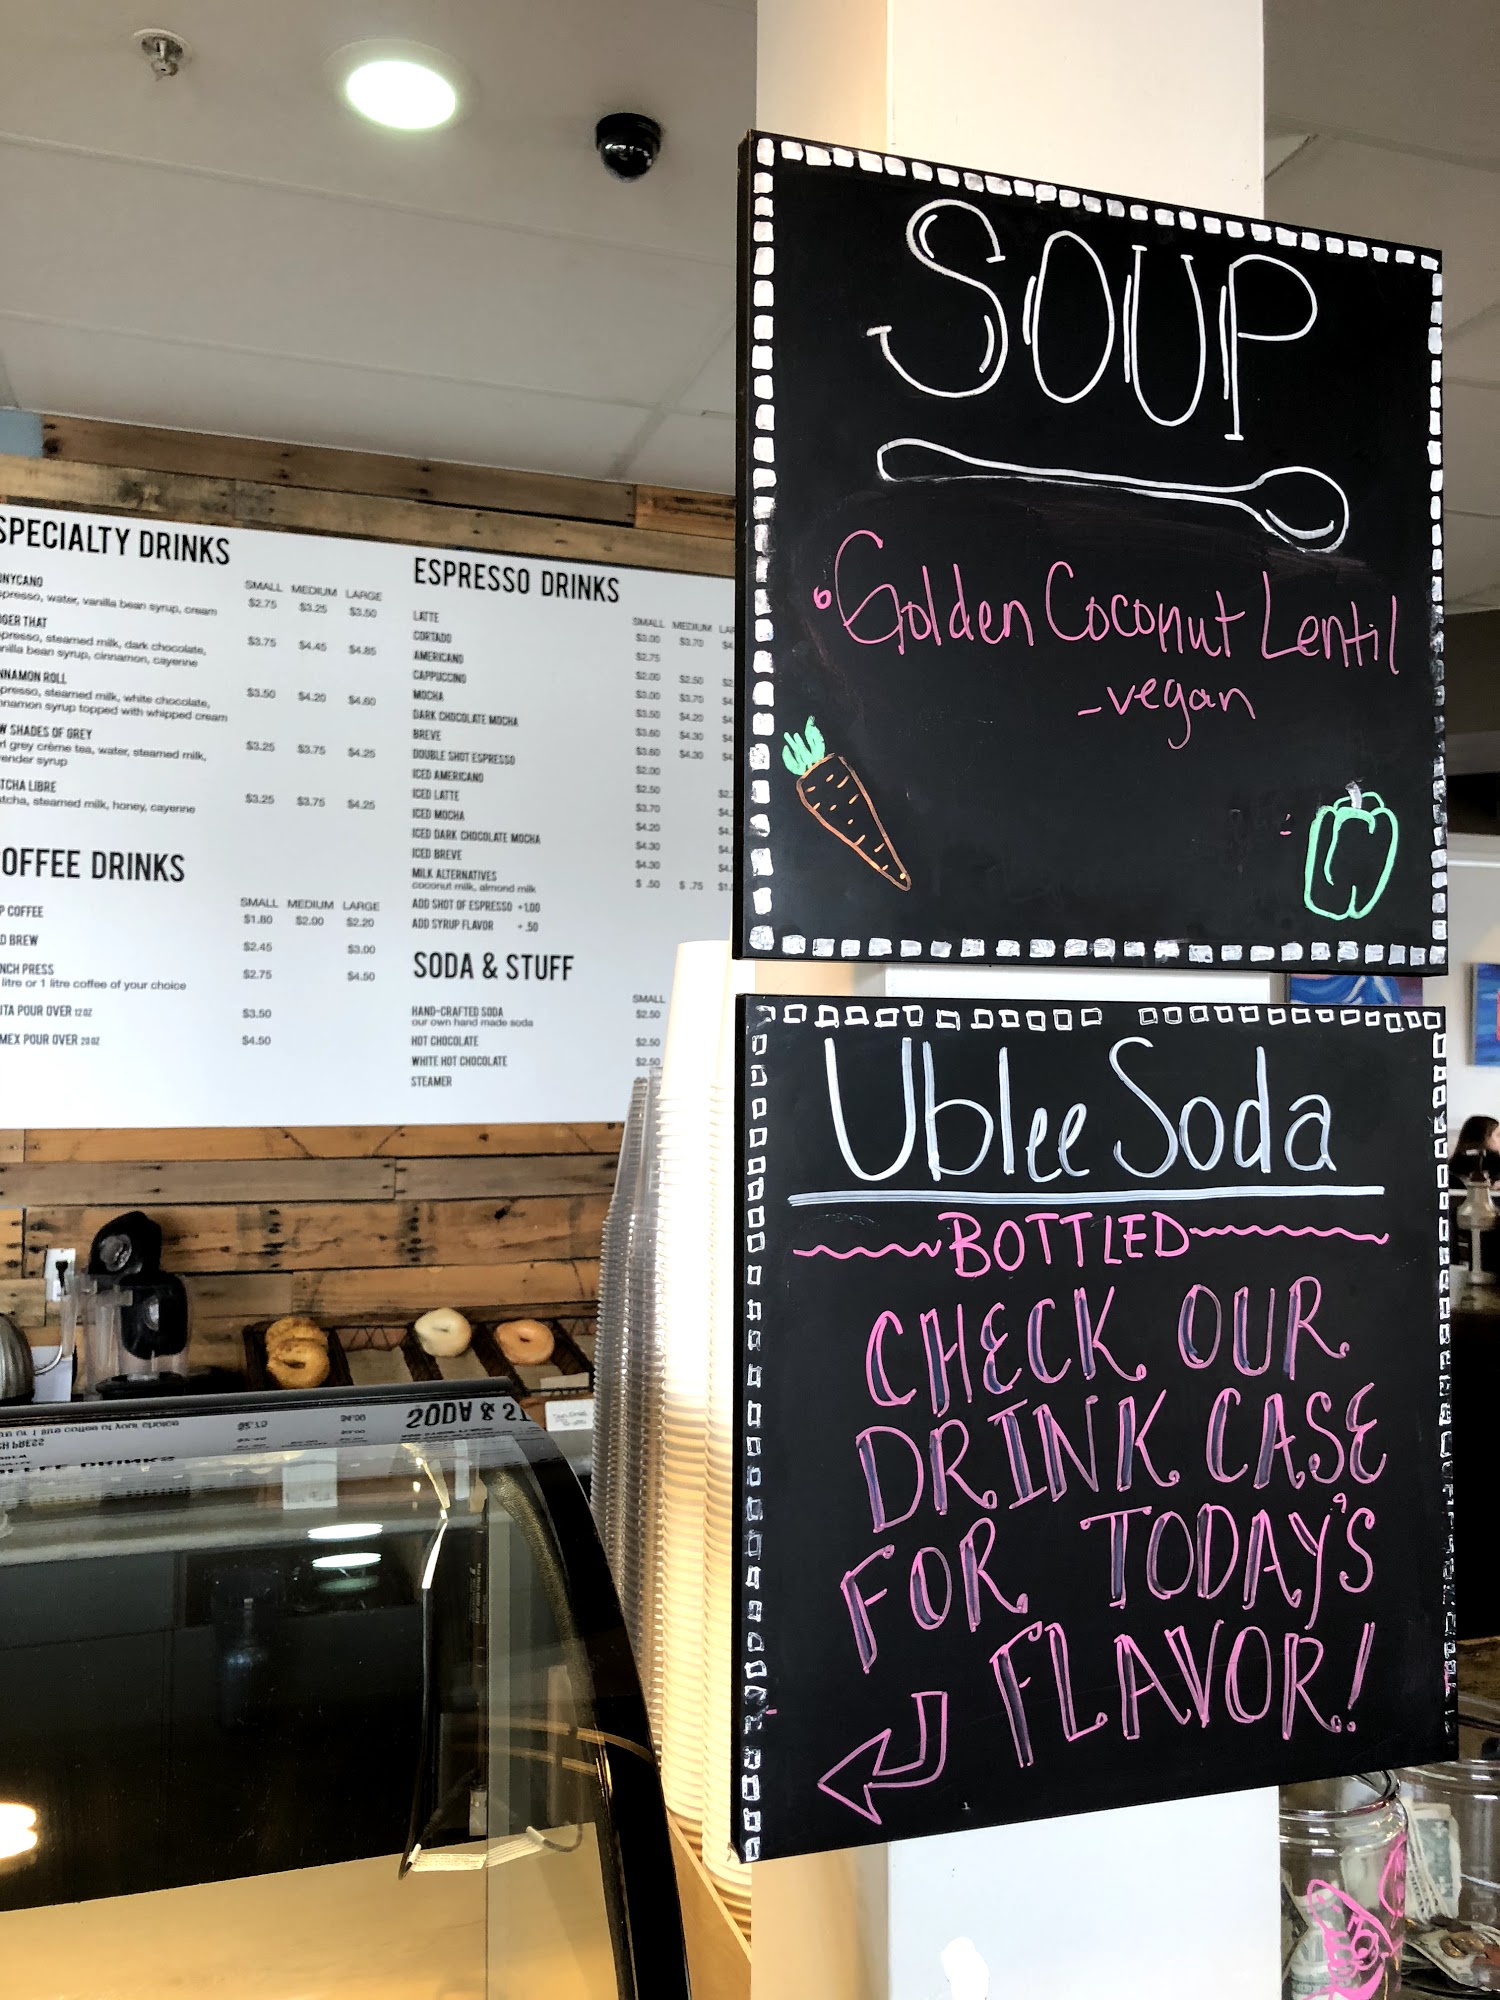 SOUP
Golden Coconut Lentil
-vegan
Ublee Soda
BOTTLED
CHECK OUR
DRINK CASE
FOR TODAY'S
FLAVOR!
SPECIALTY DRINKS
SMALL MEDIUM LARGE
NYCANO $2.75 $3.25 $3.50
presso, water, vanilla bean syrup, cream
GER THAT $3.75 $4.45 $4.85
presso, steamed milk, dark chocolate,
nilla bean syrup, cinnamon, cayenne
NNAMON ROLL $3.50 $4.20 $4.60
presso, steamed milk, white chocolate,
nnamon syrup topped with whipped cream
W SHADES OF GREY $3.25 $3.75 $4.25
rl grey crème tea, water, steamed milk,
vender syrup
TCHA LIBRE $3.25 $3.75 $4.25
tcha, steamed milk, honey, cayenne
OFFEE DRINKS
SMALL MEDIUM LARGE
P COFFEE $1.80 $2.00 $2.20
D BREW $2.45 $3.00
NCH PRESS $2.75 $4.50
litre or 1 litre coffee of your choice
ITA POUR OVER 12 OZ $3.50
MEX POUR OVER 20 OZ $4.50
ESPRESSO DRINKS
SMALL MEDIUM LA
LATTE $3.00 $3.70
CORTADO $2.75
AMERICANO $2.00 $2.50
CAPPUCCINO $3.00 $3.70
MOCHA $3.50 $4.20
DARK CHOCOLATE MOCHA $3.60 $4.30
BREVE $3.60 $4.30
DOUBLE SHOT ESPRESSO $2.00
ICED AMERICANO $2.50
ICED LATTE $3.70
ICED MOCHA $4.20
ICED DARK CHOCOLATE MOCHA $4.30
ICED BREVE $4.30
MILK ALTERNATIVES $ .50 $ .75 $1.
coconut milk, almond milk
ADD SHOT OF ESPRESSO +1.00
ADD SYRUP FLAVOR + .50
SODA & STUFF
SMALL
HAND-CRAFTED SODA $2.50
our own hand made soda
HOT CHOCOLATE $2.50
WHITE HOT CHOCOLATE $2.50
STEAMER